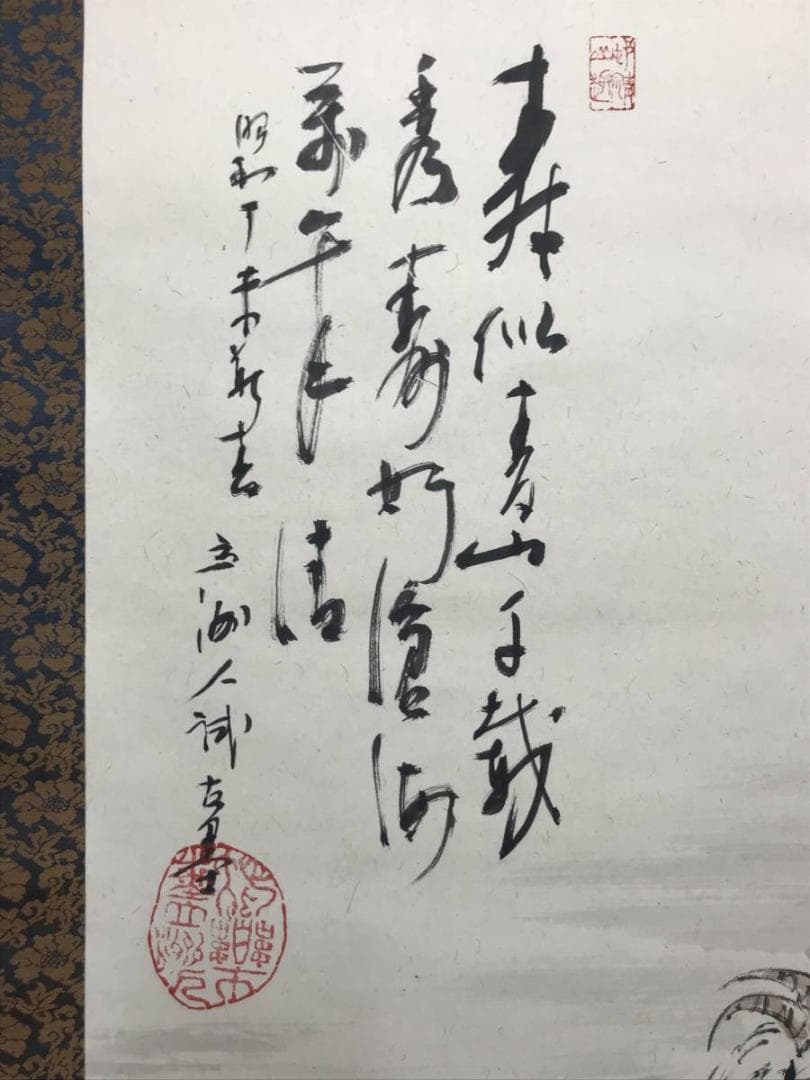 似青山千載
秀壽如滄海
萬年清
昭和丁未新春 洲人試古墨